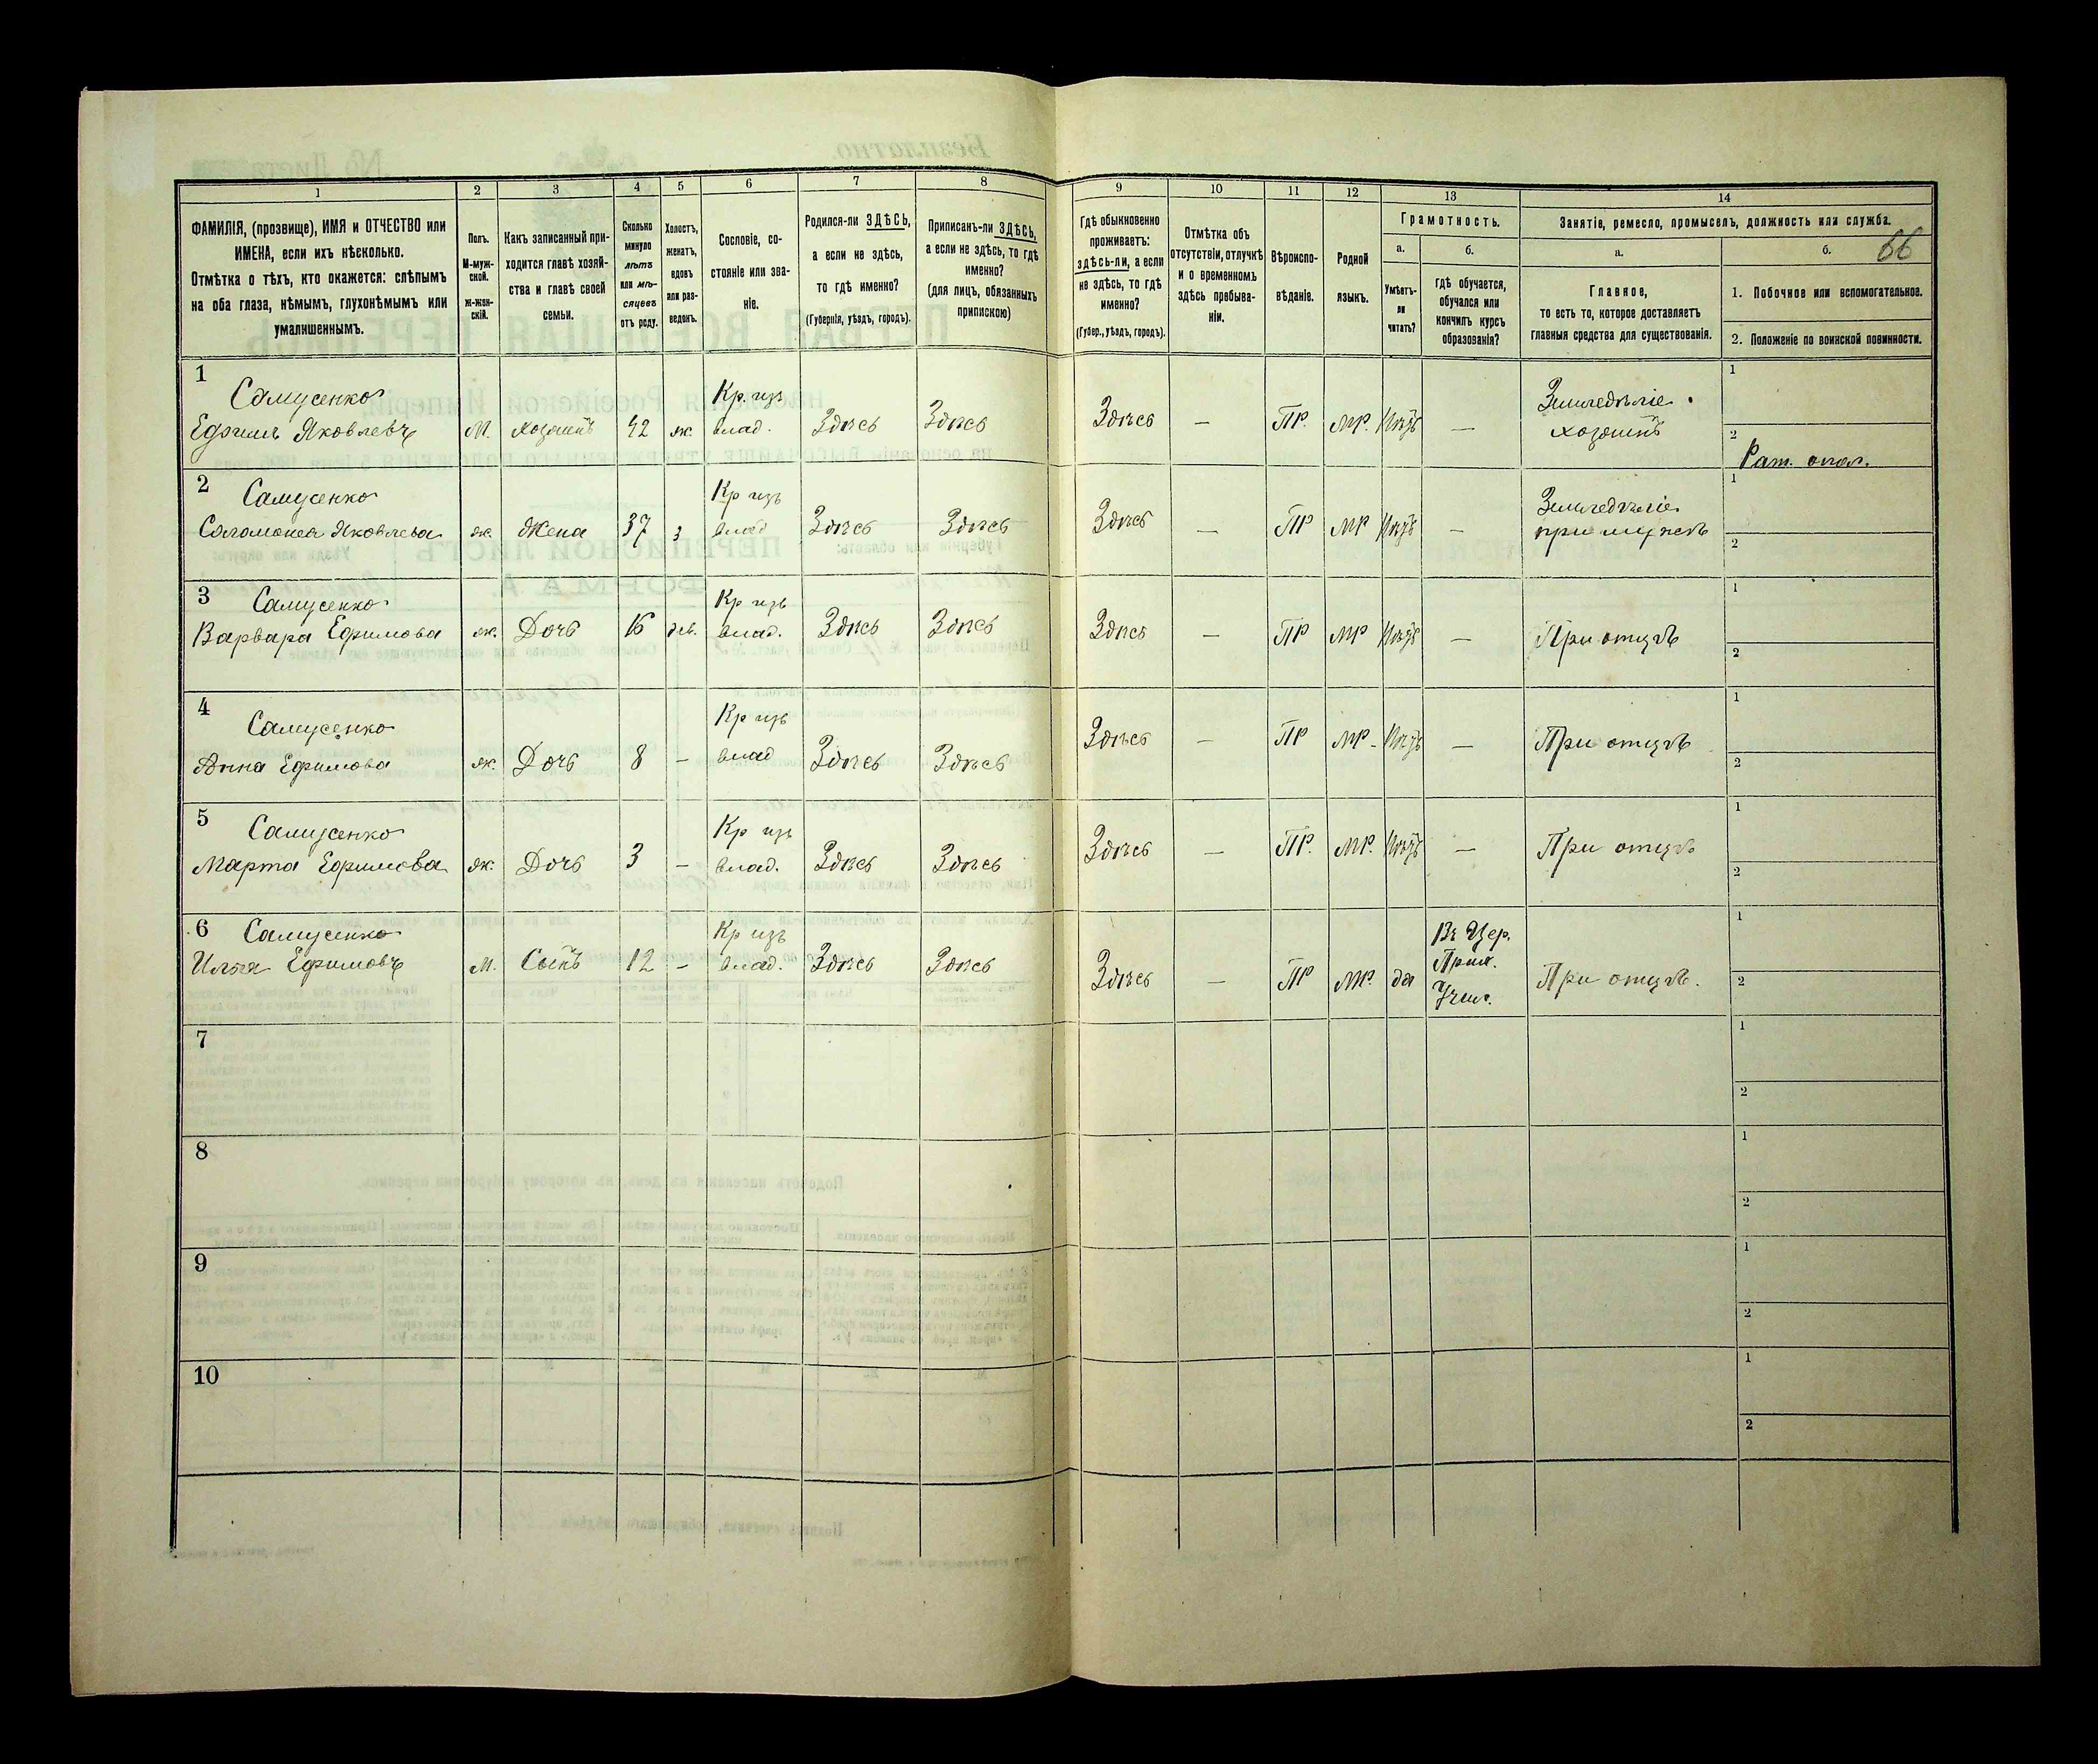 1
2
3
4
5
6
7
8
9
10
11
12
13
14
ФАМИЛІЯ, (прозвище), ИМЯ и ОТЧЕСТВО или
ИМЕНА, если ихъ нѣсколько.
Отмѣтка о тѣхъ, кто окажется: слѣпымъ
на оба глаза, нѣмымъ, глухонѣмымъ или
умалишеннымъ.
Полъ.
М-муж-
ской.
ж-жен-
скій.
Какъ записанный при-
ходится главѣ хозяй-
ства и главѣ своей
семьи.
Сколько
минуло
лѣтъ
или мѣ-
сяцевъ
отъ роду.
Холостъ,
женатъ,
вдовъ
или раз-
веденъ.
Сословіе, со-
стояніе или зва-
ніе.
Родился-ли ЗДѢСЬ,
а если не здѣсь,
то гдѣ именно?
(Губернія, уѣздъ, городъ).
Приписанъ-ли ЗДѢСЬ,
а если не здѣсь, то гдѣ
именно?
(для лицъ, обязанныхъ
припискою)
Гдѣ обыкновенно
проживаетъ:
здѣсь-ли, а если
не здѣсь, то гдѣ
именно?
(Губер., уѣздъ, городъ).
Отмѣтка объ
отсутствіи, отлучкѣ
и о временномъ
здѣсь пребыва-
ніи.
Вѣроиспо-
вѣданіе.
Родной
языкъ.
Грамотность.
а.
б.
Умѣетъ-
ли
читать?
Гдѣ обучается,
обучался или
кончилъ курсъ
образованія?
Занятіе, ремесло, промыселъ, должность или служба.
66
а.
б.
Главное,
то есть то, которое доставляетъ
главныя средства для существованія.
1. Побочное или вспомогательное.
2. Положеніе по воинской повинности.
1
Самусенко Кр. изъ Земледѣліе 1
Ефимъ Яковлевъ М. Хозяинъ 42 ж. влад. Здѣсь Здѣсь Здѣсь — ПР. МР. Нѣтъ — хозяинъ 2
Рат. опол.
2 1
Самусенко Кр изъ Земледѣліе
Соломонея Яковлева ж. Жена 37 з влад Здѣсь Здѣсь Здѣсь — ПР МР Нѣтъ — при мужѣ 2
3 1
Самусенко Кр изъ
Варвара Ефимова ж. Дочь 16 дѣв. влад. Здѣсь Здѣсь Здѣсь — ПР МР Нѣтъ — При отцѣ 2
4 1
Самусенко Кр изъ
Анна Ефимова ж. Дочь 8 — влад Здѣсь Здѣсь Здѣсь — ПР МР Нѣтъ — При отцѣ 2
5 1
Самусенко Кр изъ
Марта Ефимова ж. Дочь 3 — влад. Здѣсь Здѣсь Здѣсь — ПР. МР. Нѣтъ — При отцѣ 2
6 1
Самусенко Кр изъ Въ Цер.
Илья Ефимовъ М. Сынъ 12 — влад. Здѣсь Здѣсь Здѣсь — ПР МР. да Прих. При отцѣ. 2
Учил.
7 1
2
8 1
2
9 1
2
10 1
2